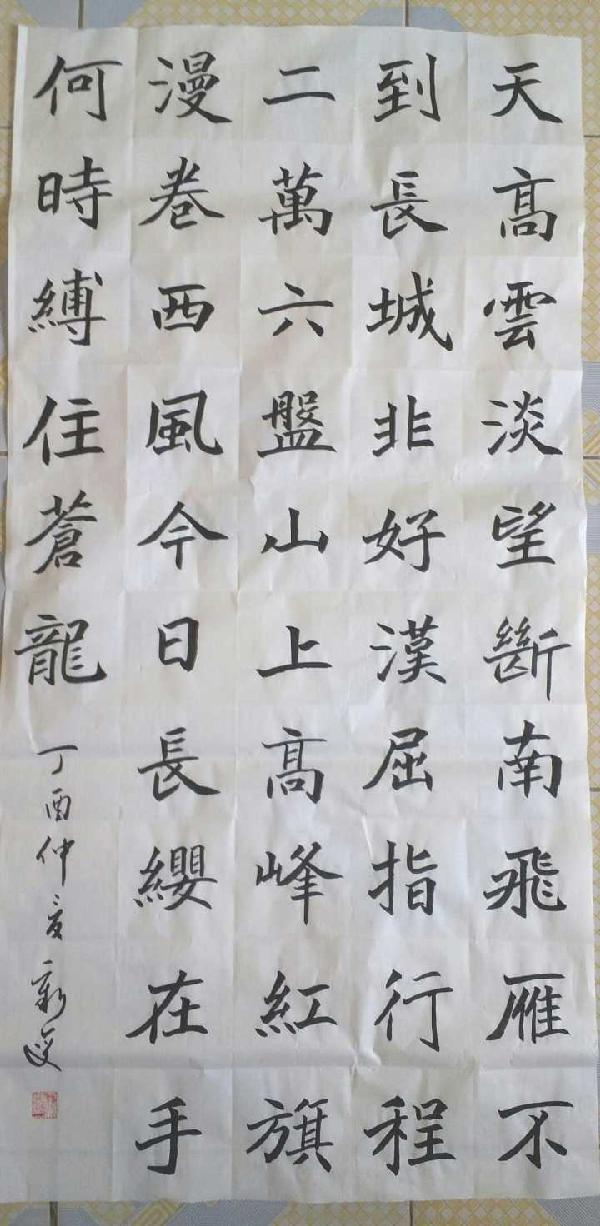 天高雲淡望斷南飛雁不
到長城非好漢屈指行程
二萬六盤山上高峰紅旗
漫卷西風今日長纓在手
何時縛住蒼龍
丁酉仲夏